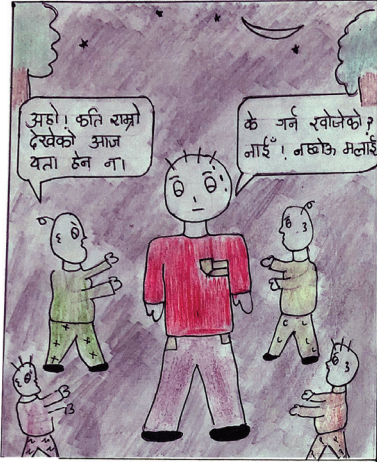 अहो! कति राम्रो
देखेको आज
यता हेन न।
के गर्न खोजेको?
नाईँ! नछोऊ मलाई